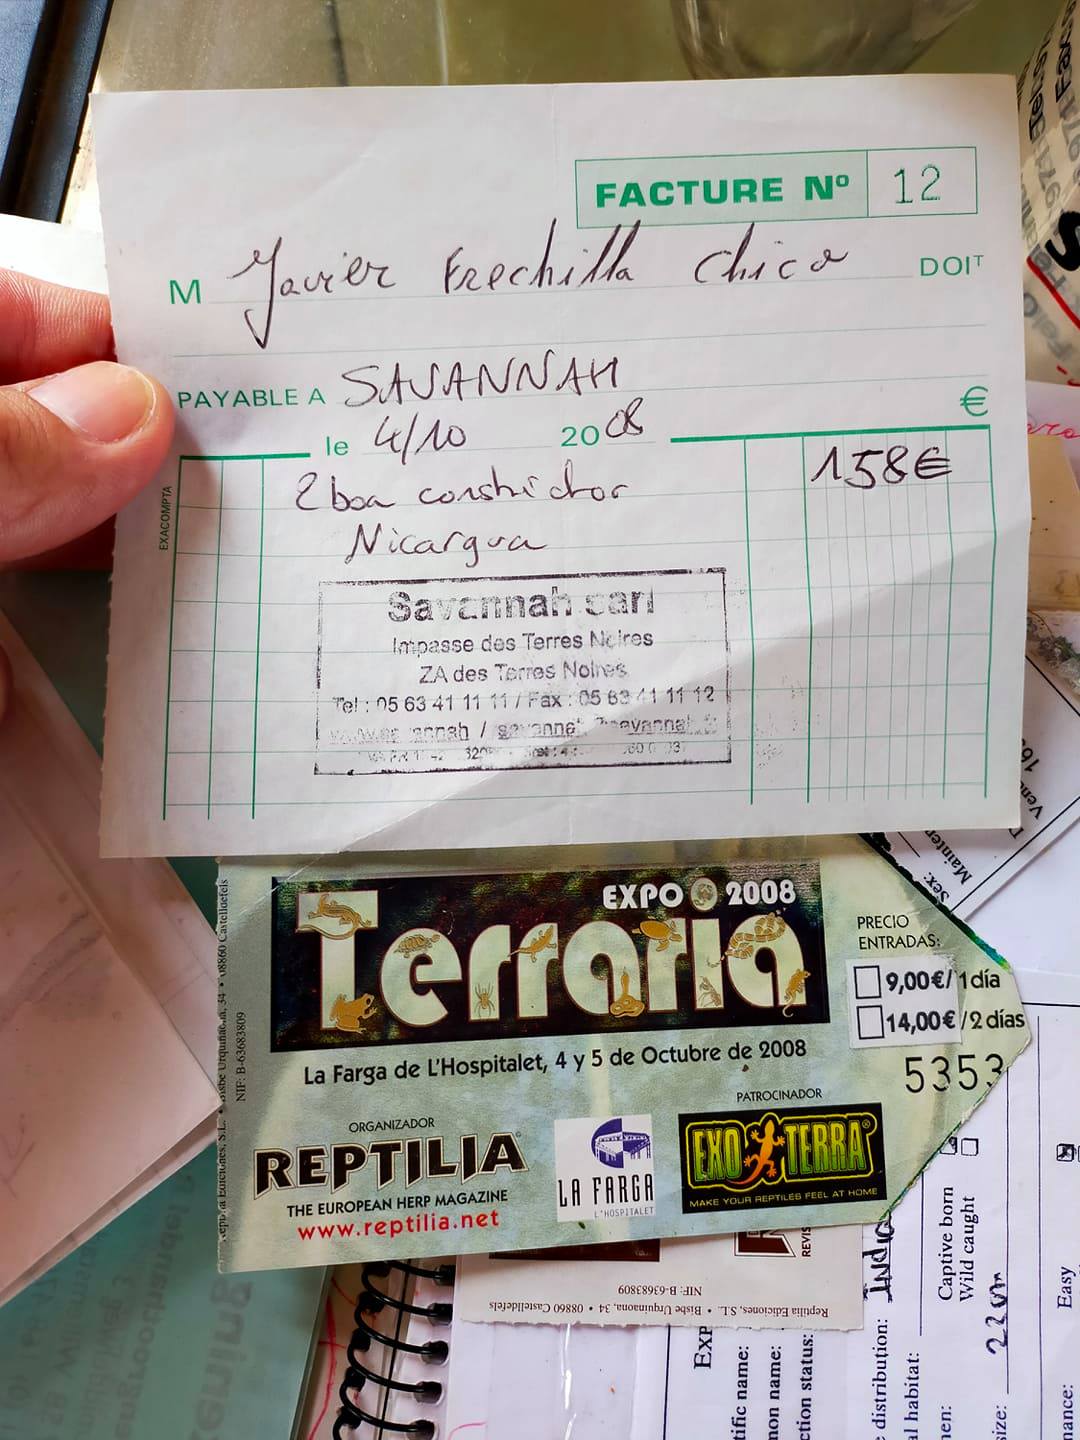 FACTURE Nº 12
M Javier Frechilla Chico DOIT
PAYABLE A SAVANNAH
€
le 4/10 2008
2 boa constrictor 158€
Nicargua
EXACOMPTA
Savannah sarl
Impasse des Terres Noires
ZA des Terres Noires
Tel : 05 63 41 11 11 / Fax : 05 63 41 11 12
EXPO 2008
Terraria
La Farga de L'Hospitalet, 4 y 5 de Octubre de 2008
PRECIO
ENTRADAS:
9,00€/1 día
14,00€/2 días
5353
ORGANIZADOR
REPTILIA
THE EUROPEAN HERP MAGAZINE
www.reptilia.net
LA FARGA
L'HOSPITALET
PATROCINADOR
EXO TERRA
MAKE YOUR REPTILES FEEL AT HOME
34 • 08860 Castelldefels
NIF: B-63683809
Reptilia Ediciones, S.L. • Bisbe Urquinaona, 34 • 08860 Castelldefels
NIF: B-63683809
Captive born
Wild caught
22 cm
Easy
distribution:
habitat:
size:
Sex: